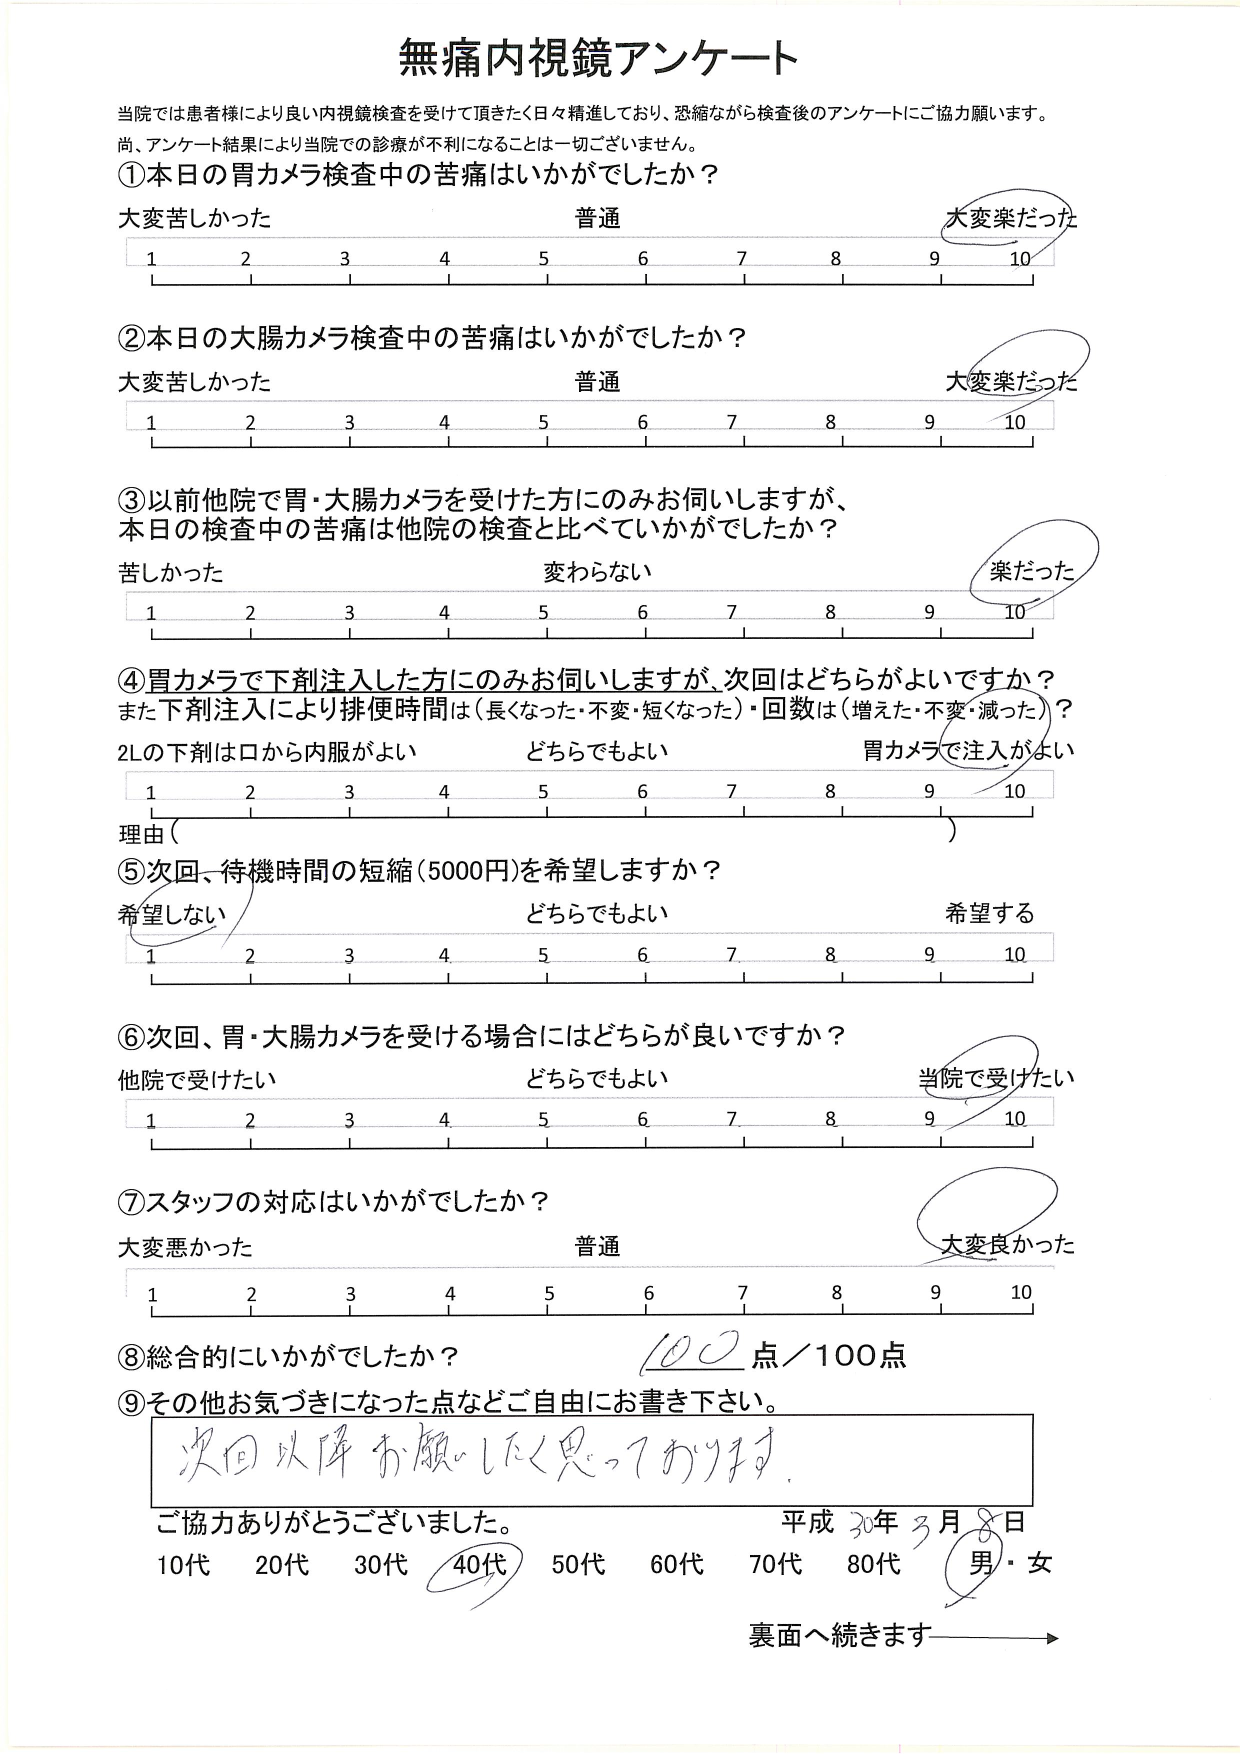 無痛内視鏡アンケート
当院では患者様により良い内視鏡検査を受けて頂きたく日々精進しており、恐縮ながら検査後のアンケートにご協力願います。
尚、アンケート結果により当院での診療が不利になることは一切ございません。
①本日の胃カメラ検査中の苦痛はいかがでしたか？
大変苦しかった 普通 大変楽だった
1 2 3 4 5 6 7 8 9 10
②本日の大腸カメラ検査中の苦痛はいかがでしたか？
大変苦しかった 普通 大変楽だった
1 2 3 4 5 6 7 8 9 10
③以前他院で胃・大腸カメラを受けた方にのみお伺いしますが、
本日の検査中の苦痛は他院の検査と比べていかがでしたか？
苦しかった 変わらない 楽だった
1 2 3 4 5 6 7 8 9 10
④胃カメラで下剤注入した方にのみお伺いしますが、次回はどちらがよいですか？
また下剤注入により排便時間は（長くなった・不変・短くなった）・回数は（増えた・不変・減った）？
2Lの下剤は口から内服がよい どちらでもよい 胃カメラで注入がよい
1 2 3 4 5 6 7 8 9 10
理由（ ）
⑤次回、待機時間の短縮（5000円）を希望しますか？
希望しない どちらでもよい 希望する
1 2 3 4 5 6 7 8 9 10
⑥次回、胃・大腸カメラを受ける場合にはどちらが良いですか？
他院で受けたい どちらでもよい 当院で受けたい
1 2 3 4 5 6 7 8 9 10
⑦スタッフの対応はいかがでしたか？
大変悪かった 普通 大変良かった
1 2 3 4 5 6 7 8 9 10
⑧総合的にいかがでしたか？ 100 点／100点
⑨その他お気づきになった点などご自由にお書き下さい。
次回以降お願いしたく思っております.
ご協力ありがとうございました。 平成 30年 3月 8日
10代 20代 30代 40代 50代 60代 70代 80代 男・女
裏面へ続きます